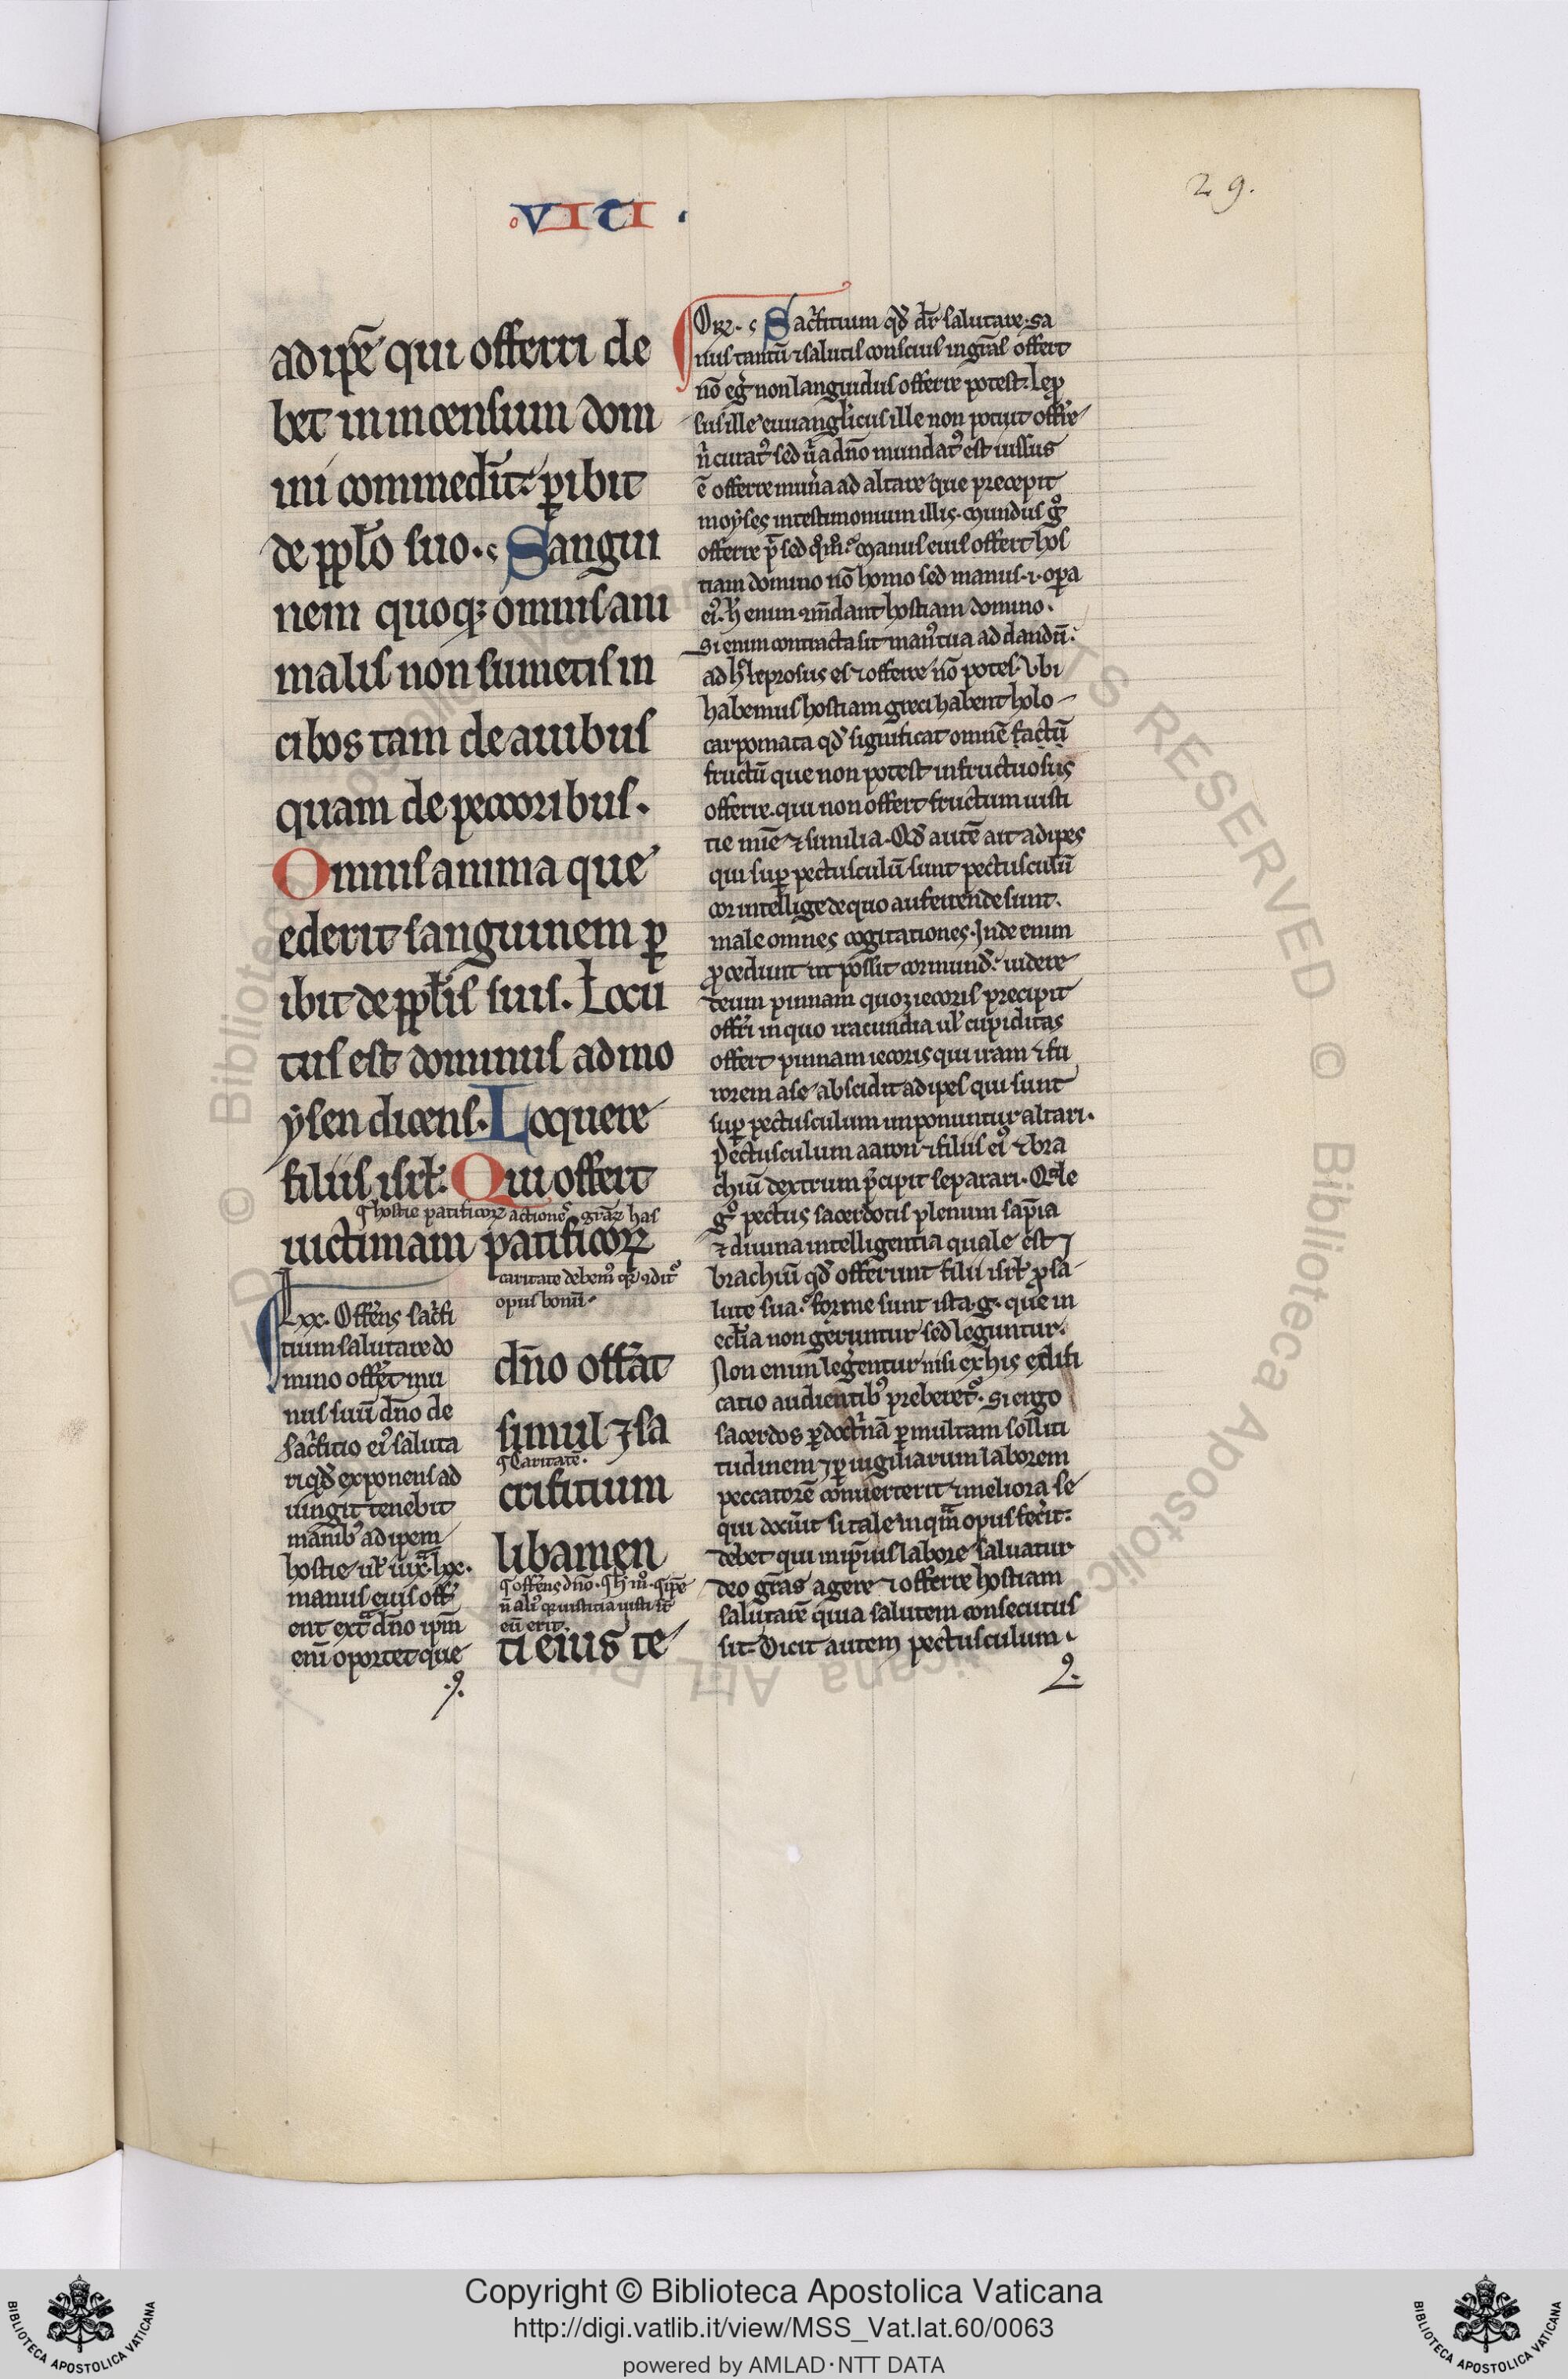 VITI
29.
adipē qui offerri de
bet in incensum dom
ini commedīt: ꝑibit
de pplo suo. Sangui
nem quoqꝫ omnis ani
malis non sumetis in
cibos tam de auibus
quam de peccoribus.
Omnis anima que
ederit sanguinem ꝑ
ibit de pplis suis. Locu
tus est dominus ad mo
ysen dicens. Loquere
filiis isrł. Qui offert
hostie pacificoꝝ actiones graꝝ has
uictimam pacificoꝝ
caritate debemꝰ
opus bonū.
dn̄o offat
simul ⁊ sa
Caritatē.
crificium
libamen
eū erit.
ti eius te
Lxx. Offens sacfi
tium salutare do
mino offet mu
nus suū dn̄o de
sacfitio eiꝰ saluta
ri qd̄ exponens ad
iungit tenebit
manibꝰ adipem
hostie ul iuxͣ lxx.
manus eius off
ent extͣ dn̄o ipm̄
eni oportet que
Orꝫ. Sacfitium qd̄ dr̄ salutare. sa
nus tantū ⁊ salutis conscius in gras offert
nō egr non languidus offerre potest. Lepro
sus ille euuanglicus ille non potuit offre
n̄ curatꝰ sed a dn̄o mundatꝰ est iussus
ē offerre munera ad altare que precepit
moyses in testimonium illis. Mundus gͦ
offerre Manus eius offert hos
tiam domino nō homo sed manus .i. opa
eiꝰ. h enim mandant hostiam domino.
Si enim contracta sit manꝰ tua ad dandū.
ad h leprosus es ⁊ offerre nō potes. Vbi
habemus hostiam greci habent holo
carpomata qd̄ significat omnē factū
fructū que non potest infructuosus
offerre. qui non offert fructum iusti
tie mie ⁊ similia. Qd̄ autē ait adipes
qui suꝑ pectusculū sunt pectusculū
cor intellige de quo auferende sunt.
male omnes cogitationes. Inde enim
ꝓcedunt ut possit cor mundū uidere
deum pinnam quoꝫ iecoris precipit
offri in quo iracundia ul cupiditas
offert pinnam iecoris qui iram ⁊ fu
rorem a se abscidit adipes qui sunt
suꝑ pectusculum imponuntur altari.
Pectusculum aaron ⁊ filiis eiꝰ ⁊ bra
chiū dextrum p̄cipit separari. Qale
gͦ pectus sacerdotis plenum sapia
⁊ diuina intelligentia quale est ⁊
brachiū qd̄ offerunt filii isrł ꝓ sa
lute sua. forme sunt ista .g. que in
ecclia non geruntur sed leguntur.
Non enim legentur nisi ex his edifi
catio audientibꝰ preberetꝰ. Si ergo
sacerdos ꝑ doctnā ꝑ multam solliti
tudinem ⁊ ꝑ uigiliarum laborem
peccatorē conuerterit ⁊ meliora se
qui docuit si tale inqͣm opus fecit:
debet qui impius labore saluatur
deo gras agere ⁊ offerre hostiam
salutarē quia salutem consecutus
sit. Dicit autem pectusculum
Copyright © Biblioteca Apostolica Vaticana
http://digi.vatlib.it/view/MSS_Vat.lat.60/0063
powered by AMLAD·NTT DATA
BIBLIOTECA APOSTOLICA VATICANA
BIBLIOTECA APOSTOLICA VATICANA